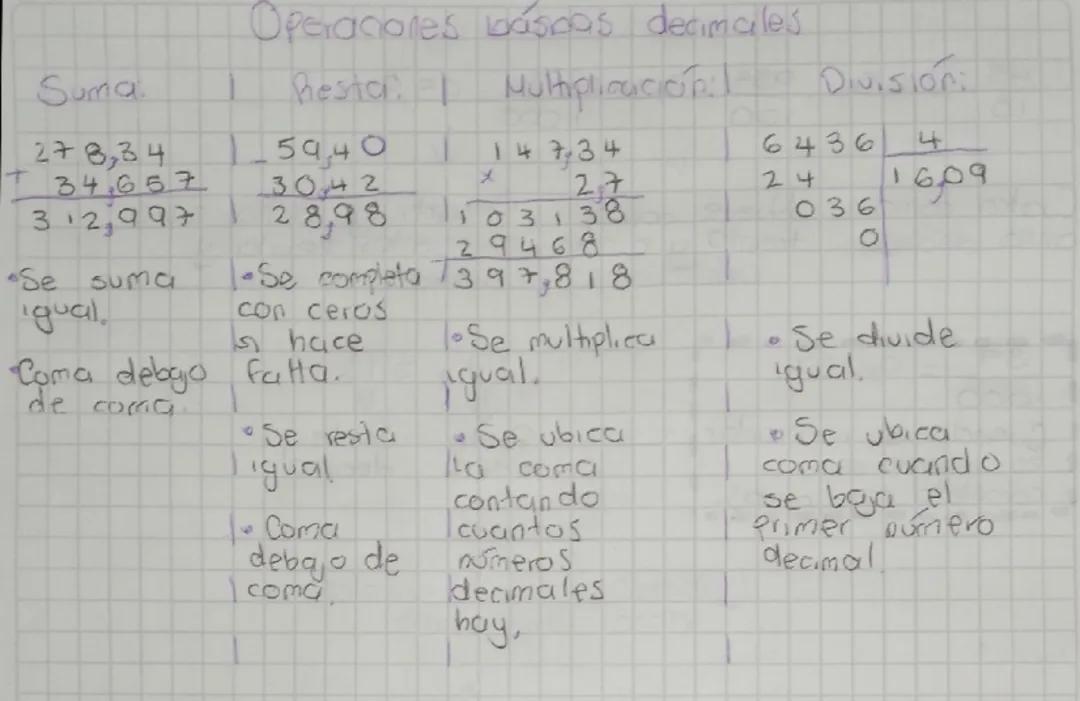 Operaciones báscas decimales
Suma:
278,34
+ 34,657
312,997
•Se suma
igual.
•Coma debajo
de coma.
Resta:
- 59,40
30,42
28,98
•Se completa
con ceros
si hace
falta.
•Se resta
igual
•Coma
debajo de
coma.
Multiplicación:
147,34
x 2,7
103138
29468
397,818
•Se multiplica
igual.
•Se ubica
la coma
contando
cuantos
números
decimales
hay.
División:
6436 4
24 16,09
036
0
•Se divide
igual.
•Se ubica
coma cuando
se baja el
primer número
decimal.